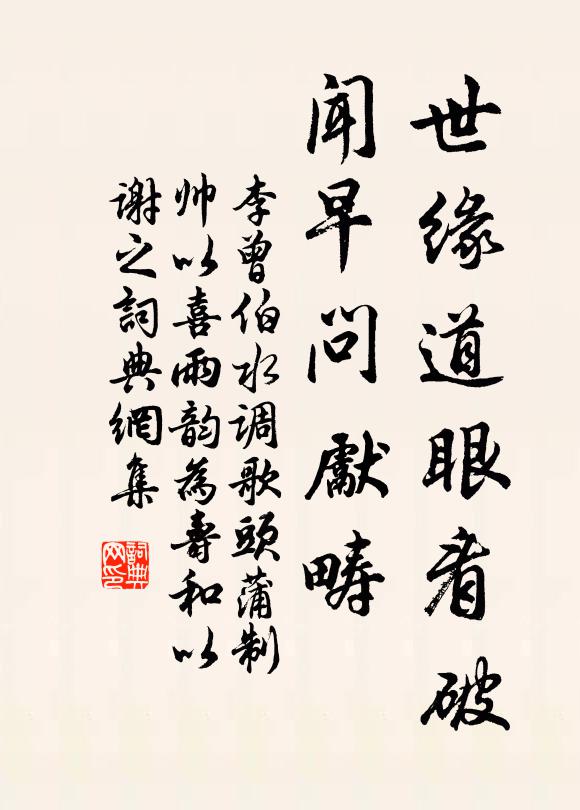 世缘道眼看破
闻早问獻畴
李曾伯水调歌頭蒲制
帅以喜雨韵為壽和以
谢之詞典網集
詞典网印